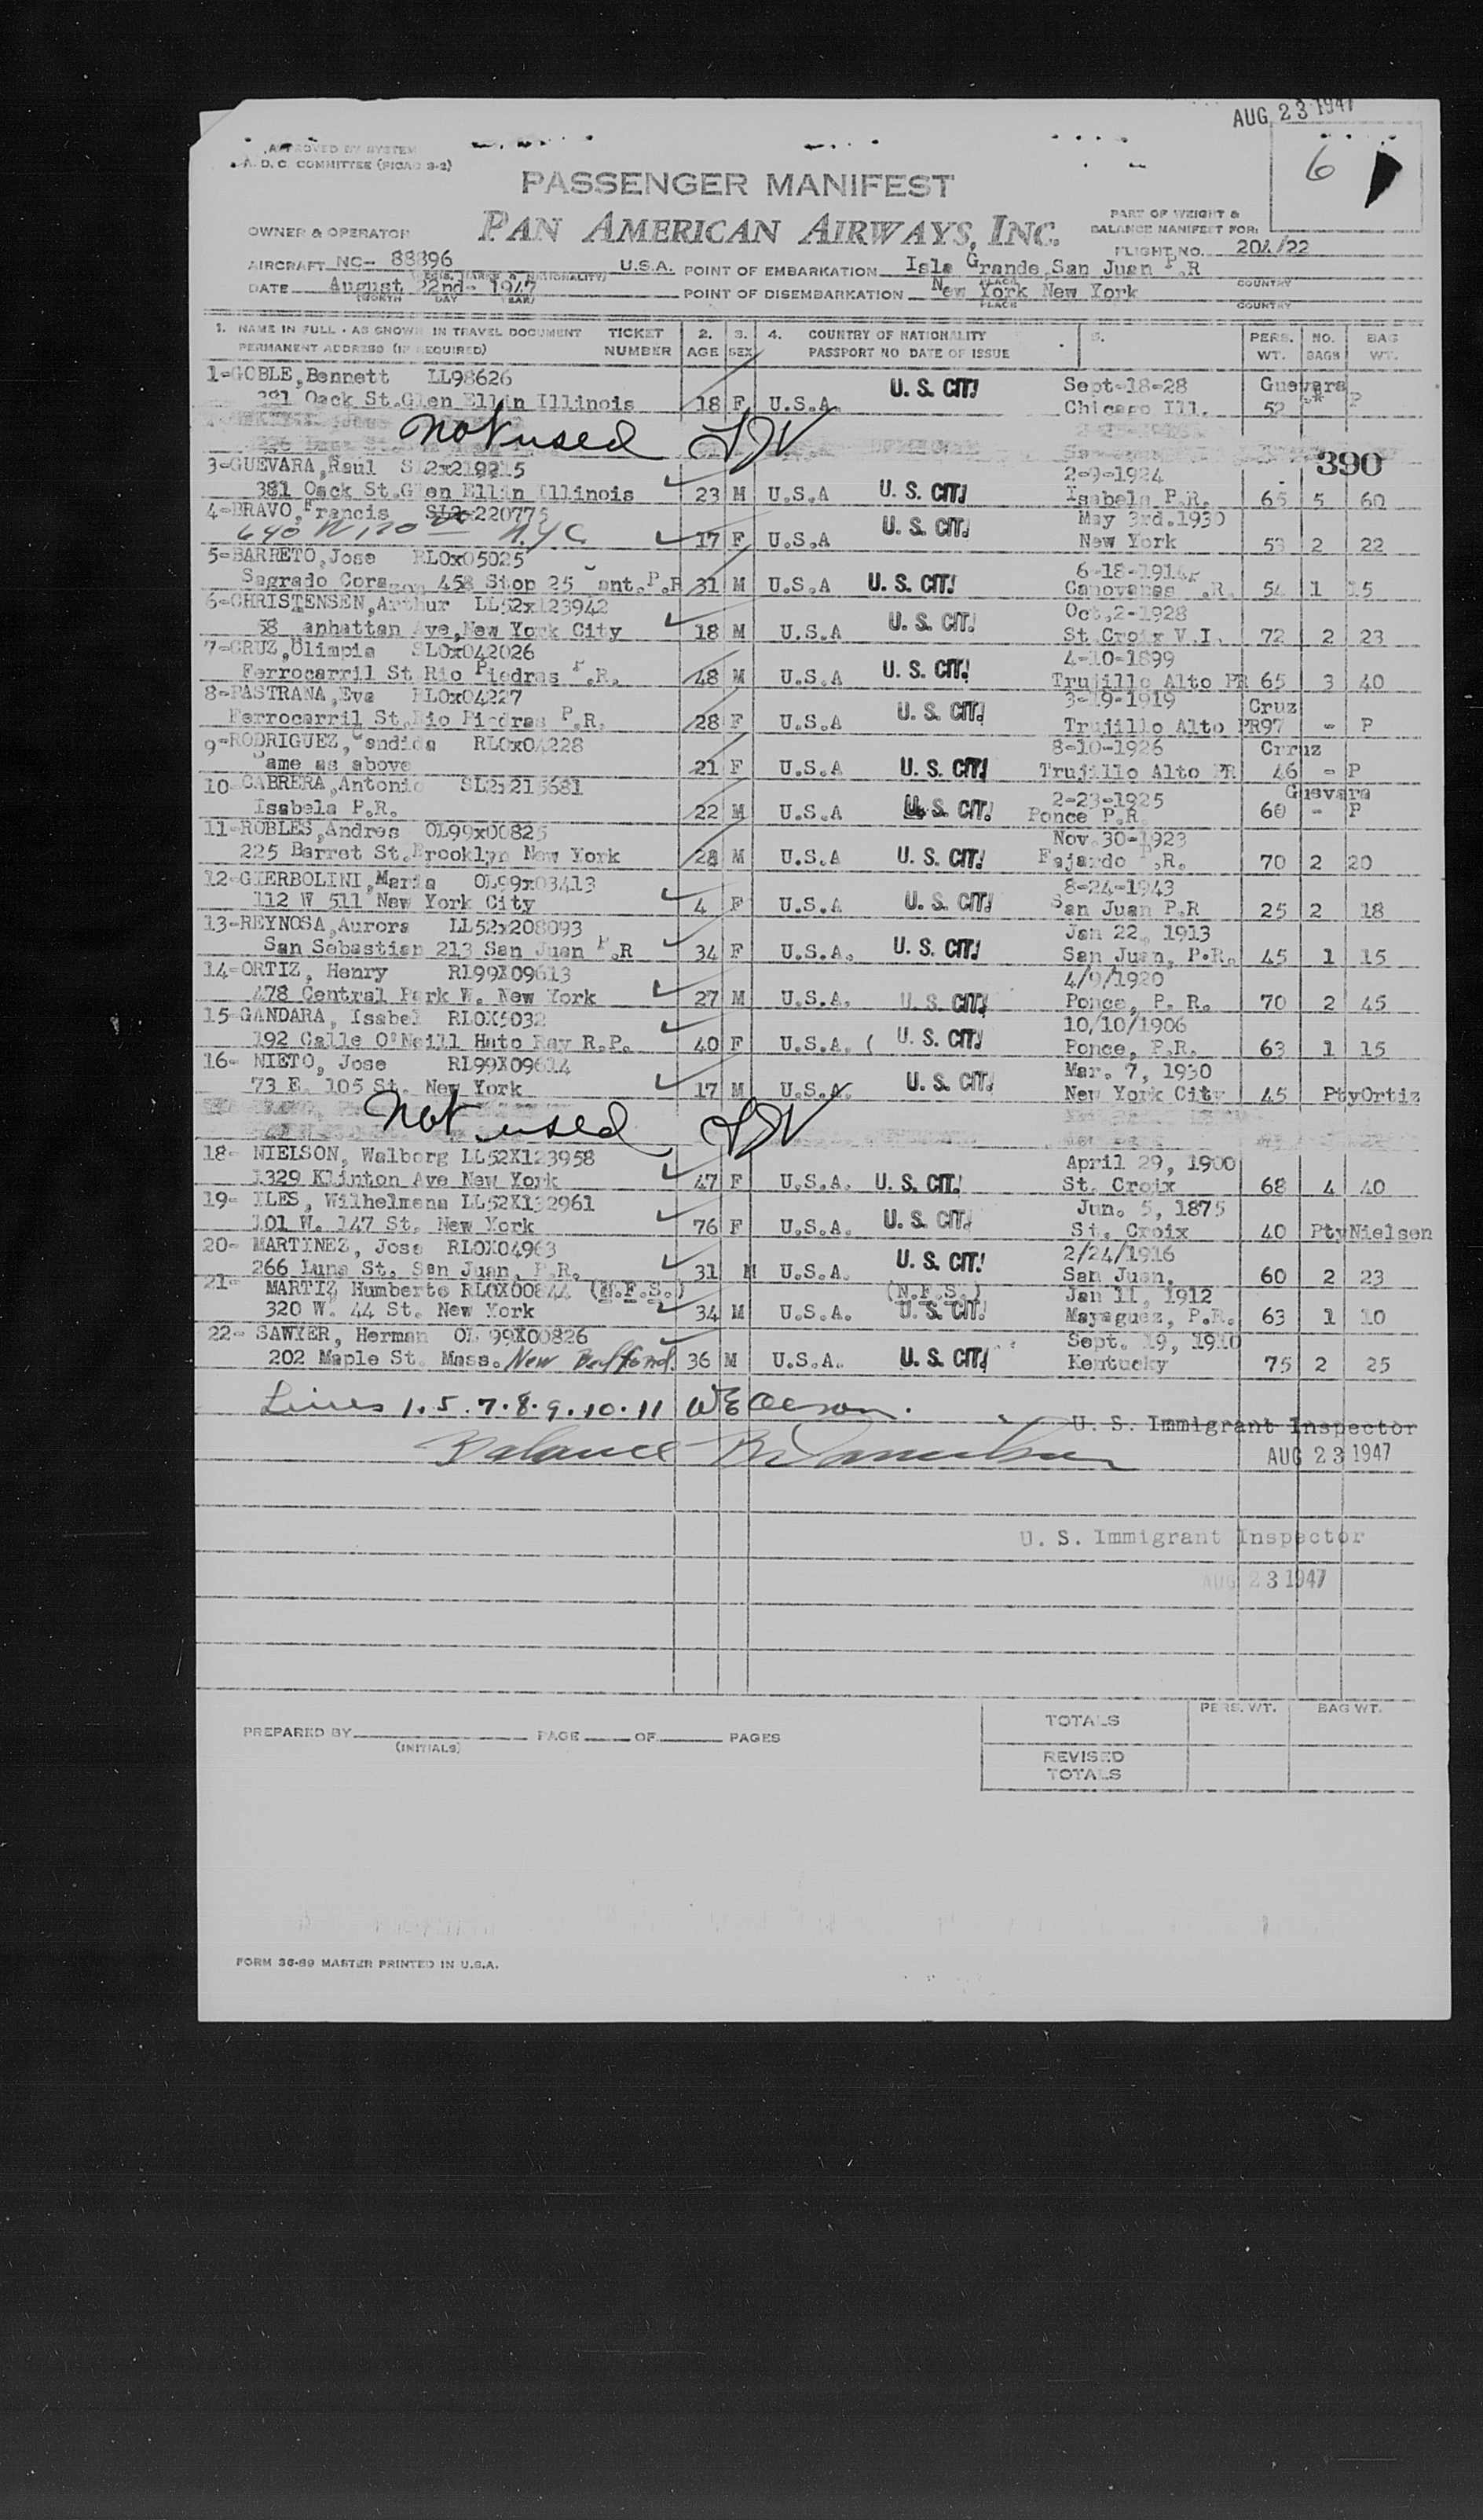 AUG 23 1947
APPROVED BY SYSTEM
A. D. C. COMMITTEE (PICAO 9-2)
6
PASSENGER MANIFEST
PAN AMERICAN AIRWAYS, INC.
PART OF WEIGHT &
BALANCE MANIFEST FOR:
OWNER & OPERATOR
FLIGHT NO. 20A/22
AIRCRAFT NC- 88896 U.S.A. POINT OF EMBARKATION Isla Grande, San Juan P.R
(REG. MARKS & NATIONALITY) PLACE COUNTRY
DATE August 22nd- 1947 POINT OF DISEMBARKATION New York New York
(MONTH DAY YEAR) PLACE COUNTRY
1. NAME IN FULL - AS SHOWN IN TRAVEL DOCUMENT TICKET 2. 3. 4. COUNTRY OF NATIONALITY 5. PERS. NO. BAG
PERMANENT ADDRESS (IF REQUIRED) NUMBER AGE SEX PASSPORT NO DATE OF ISSUE WT. BAGS WT.
1-GOBLE, Bennett LL98626 U. S. CIT. Sept-18-28 Guevara
381 Oack St.Glen Ellin Illinois 18 F U.S.A. Chicago Ill. 52 P
Not used
390
3-GUEVARA, Raul 2-9-1924
381 Oack St.Glen Ellin Illinois 23 M U.S.A U. S. CIT. Isabela P.R. 65 5 60
4-BRAVO, Francis 220775 U. S. CIT. May 3rd.1930
640 W 170 N.Y.C 17 F U.S.A New York 53 2 22
5-BARRETO, Jose RLOx05025 6-18-1916
Sagrado Corazon 458 Stop 25 Sant. P.R 31 M U.S.A U. S. CIT. Canovanas P.R. 54 1 15
6-CHRISTENSEN, Arthur LL52x123942 U. S. CIT. Oct,2-1928
58 Manhattan Ave, New York City 18 M U.S.A St.Croix V.I. 72 2 23
7-CRUZ, Olimpia SLOx042026 4-10-1899
Ferrocarril St Rio Piedras P.R. 48 M U.S.A U. S. CIT. Trujillo Alto PR 65 3 40
8-PASTRANA, Eva RLOx04227 U. S. CIT. 3-19-1919 Cruz
Ferrocarril St, Rio Piedras P.R. 28 F U.S.A Trujillo Alto PR97 - P
9-RODRIGUEZ, Candida RLOx04228 8-10-1926 Crruz
Same as above 21 F U.S.A U. S. CIT. Trujillo Alto PR 46 - P
10-CABRERA, Antonio SL2x215681 2-23-1925 Guevara
Isabela P.R. 22 M U.S.A U. S. CIT. Ponce P.R. 60 - P
11-ROBLES, Andres OL99x00825 Nov.30-1923
225 Barret St.Brooklyn New York 28 M U.S.A U. S. CIT. Fajardo P.R. 70 2 20
12-GIERBOLINI, Maria OL99x03413 8-24-1943
112 W 511 New York City 4 F U.S.A U. S. CIT. San Juan P.R 25 2 18
13-REYNOSA, Aurora LL52x208093 Jan 22, 1913
San Sebastian 213 San Juan P.R 34 F U.S.A. U. S. CIT. San Juan, P.R. 45 1 15
14-ORTIZ, Henry RL99X09613 4/9/1920
478 Central Park W. New York 27 M U.S.A. U. S. CIT. Ponce, P. R. 70 2 45
15-GANDARA, Isabel RLOX5032 10/10/1906
192 Calle O'Neill Hato Ray R.P. 40 F U.S.A. ( U. S. CIT. Ponce, P.R. 63 1 15
16- NIETO, Jose RL99X09614 Mar. 7, 1930
73 E. 105 St. New York 17 M U.S.A. U. S. CIT. New York City 45 PtyOrtiz
Not used
18- NIELSON, Walborg LL52X123958 April 29, 1900
1329 Klinton Ave New York 47 F U.S.A. U. S. CIT. St. Croix 68 4 40
19- ILES, Wilhelmena LL52X132961 Jun. 5, 1875
101 W. 147 St. New York 76 F U.S.A. U. S. CIT. St. Croix 40 PtyNielsen
20- MARTINEZ, Jose RLOX04963 2/24/1916
266 Luna St. San Juan, P.R. 31 M U.S.A. U. S. CIT. San Juan, 60 2 23
21- MARTIZ Humberto RLOX00844 (N.F.S.) (N.F.S.) Jan 11, 1912
320 W. 44 St. New York 34 M U.S.A. U. S. CIT. Mayaguez, P.R. 63 1 10
22- SAWYER, Herman OL 99X00826 Sept. 19, 1910
202 Maple St. Mass. New Bedford 36 M U.S.A. U. S. CIT. Kentucky 75 2 25
Lines 1.5.7.8.9.10.11
U. S. Immigrant Inspector
Balance
AUG 23 1947
U. S. Immigrant Inspector
AUG 23 1947
PREPARED BY PAGE OF PAGES
(INITIALS)
PERS. WT. BAG WT.
TOTALS
REVISED
TOTALS
FORM 36-89 MASTER PRINTED IN U.S.A.